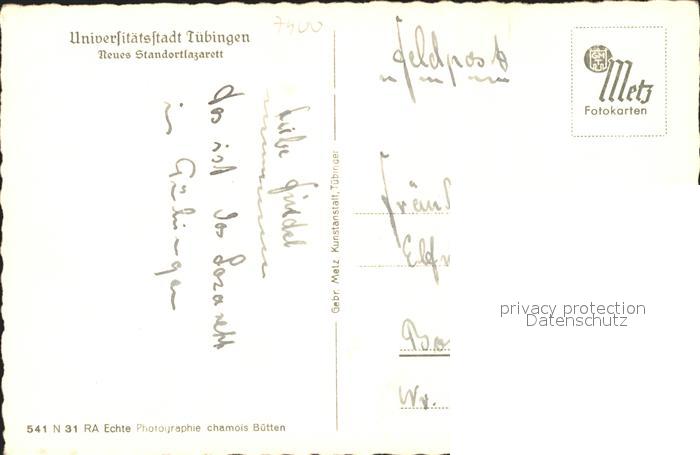 7400
Universitätsstadt Tübingen
Neues Standortlazarett
Liebe
Das ist das Lazarett
in Tübingen
Gebr. Metz, Kunstanstalt, Tübingen
541 N 31 RA Echte Photographie chamois Bütten
Feldpost
Metz
Fotokarten
Fräul
Elfr
Bo
Nr.
privacy protection
Datenschutz